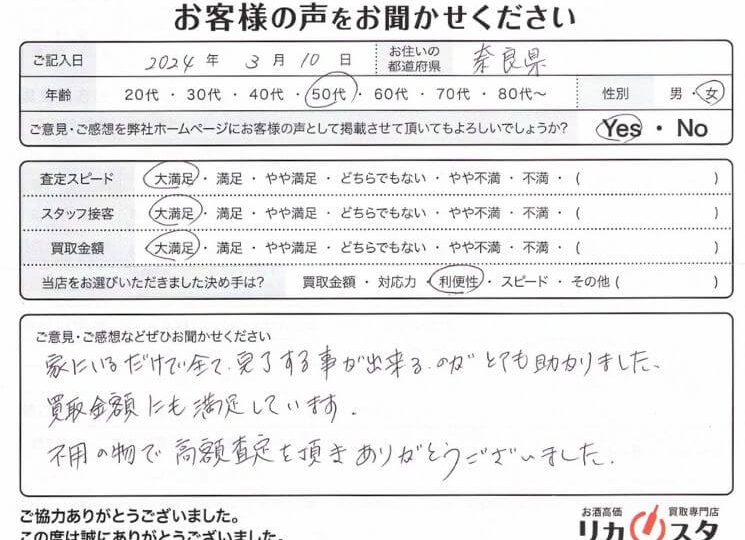 お客様の声をお聞かせください
ご記入日 2024 年 3 月 10 日 お住いの都道府県 奈良県
年齢 20代 ・ 30代 ・ 40代 ・ 50代 ・ 60代 ・ 70代 ・ 80代～ 性別 男 ・ 女
ご意見・ご感想を弊社ホームページにお客様の声として掲載させて頂いてもよろしいでしょうか? Yes ・ No
査定スピード 大満足 ・ 満足 ・ やや満足 ・ どちらでもない ・ やや不満 ・ 不満 ・ ( )
スタッフ接客 大満足 ・ 満足 ・ やや満足 ・ どちらでもない ・ やや不満 ・ 不満 ・ ( )
買取金額 大満足 ・ 満足 ・ やや満足 ・ どちらでもない ・ やや不満 ・ 不満 ・ ( )
当店をお選びいただきました決め手は? 買取金額 ・ 対応力 ・ 利便性 ・ スピード ・ その他 ( )
ご意見・ご感想などぜひお聞かせください
家にいるだけで全て、完了する事が出来る、のがとても助かりました、
買取金額にも満足しています.
不用の物で高額査定を頂きありがとうございました.
ご協力ありがとうございました。
この度は誠にありがとうございました。
お酒高価 買取専門店
リカスタ